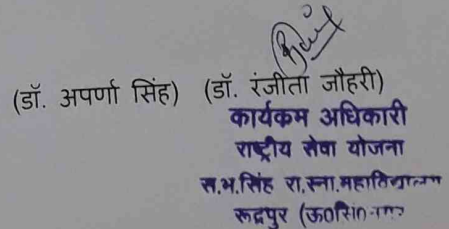 (डॉ. अपर्णा सिंह) (डॉ. रंजीता जौहरी)
कार्यकम अधिकारी
राष्ट्रीय सेवा योजना
स.भ.सिंह रा.स्ना.महाविद्यालय
रूद्रपुर (ऊ०सि०नगर